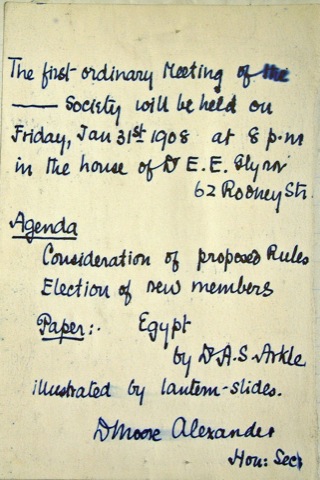 The first ordinary Meeting of the
—— Society will be held on
Friday, Jan 31st 1908 at 8 p.m
in the house of Dr E.E. Glynn
62 Rodney Str.
Agenda
Consideration of proposed Rules
Election of new members
Paper:. Egypt
by Dr A.S. Arkle
illustrated by lantern-slides.
D Moore Alexander
Hon: Sec: